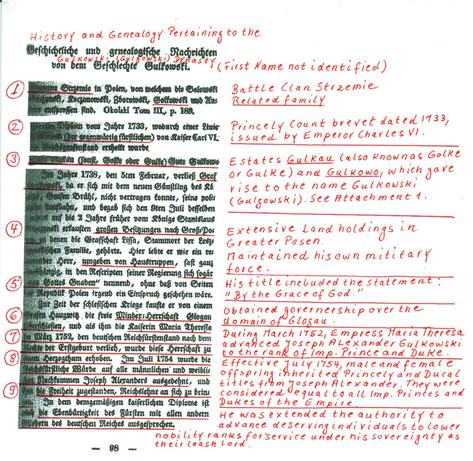 History and Genealogy Pertaining to the
Geschichtliche und genealogische Nachrichten
Gulkowski (Gulgowski) Dynasty
von dem Geschlechte Gulkowski.
(First Name not identified)
1
Strzemie in Polen, von welchem die
Koczanowski, Zborowski, Golkowski und
entsprossen sind. Okolski Tom III., p. 189.
Battle Clan Strzemie
Related family
2
Diplom vom Jahre 1733, wodurch einer Linie
(der gegenwärtig fürstlichen) von Kaiser Carl VI.
erteilt wurde.
Princely Count brevet dated 1733,
issued by Emperor Charles VI.
3
(sonst, Golke oder Gulke) Gute Gulkowo
Estates Gulkau (also known as Golke
or Gulke) and Gulkowo, which gave
rise to the name Gulkowski
(Gulgowski). See Attachment 1.
Im Jahre 1738, den 5ten Februar, verließ Graf
da er sich mit dem neuen Günstling des Kö-
Grafen Brühl, nicht vertragen konnte, seine poli-
und begab sich den 9ten Juli desselben
auf die 2 Jahre früher vom Könige Stanislaus
4
erkauften großen Besitzungen nach Groß-Po-
in denen die Grafschaft Lissa, Stammort der Lesz-
Familie, gehörte. Hier lebte er wie ein re-
Herr, umgeben von Haustruppen, fast ganz
in den Rescripten seiner Regierung sich sogar
Extensive Land holdings in
Greater Posen.
Maintained his own military
force.
5
Gottes Gnaden" nennend, ohne daß von Seiten
Republik Polen irgend ein Einspruch geschehen wäre.
His title included the statement:
"By the Grace of God."
Zeit der schlesischen Kriege kaufte er von einem
6
Haugwitz die freie Minder-Herrschaft Glogau
und als ihm die Kaiserin Maria Theresia
Obtained governership over the
domain of Glogau.
7
März 1752, den deutschen Reichsfürstenstand nach dem
der Erstgeburt verlieh, wurde diese Herrschaft zu
During March 1752, Empress Maria Theresa
advanced Joseph Alexander Gulkowski
to the rank of Imp. Prince and Duke.
8
Herzogthum erhoben. Im Juli 1754 wurde die
Würde auf alle männlichen und weibli-
Nachkommen Joseph Alexanders ausgedehnt, und
Effective July 1754, male and female
offspring inherited Princely and Ducal
titles from Joseph Alexander. They were
considered equal to all Imp. Princes and
Dukes of the Empire.
9
die Freiheit zugestanden, Reichslehne an sich zu brin-
In dem demgemäßen kaiserlichen Diplome ist
die Ebenbürtigkeit des Fürsten mit allen andern
des deutschen Reiches ausgesprochen.
He was extended the authority to
advance deserving individuals to lower
nobility ranks for service under his sovereignty as
their leash lord.
— 98 —